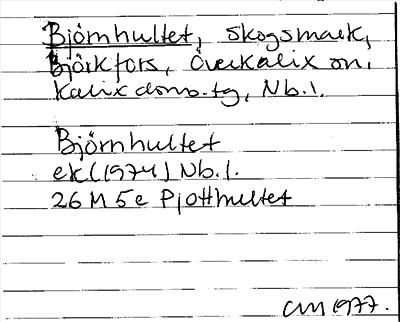 Björnhultet, skogsmark,
Björkfors, Överkalix sn,
Kalix doms.tg, Nb.l.
Björnhultet
ek (1974) Nb.l.
26 M 5e Pjotthultet
CM 1977.